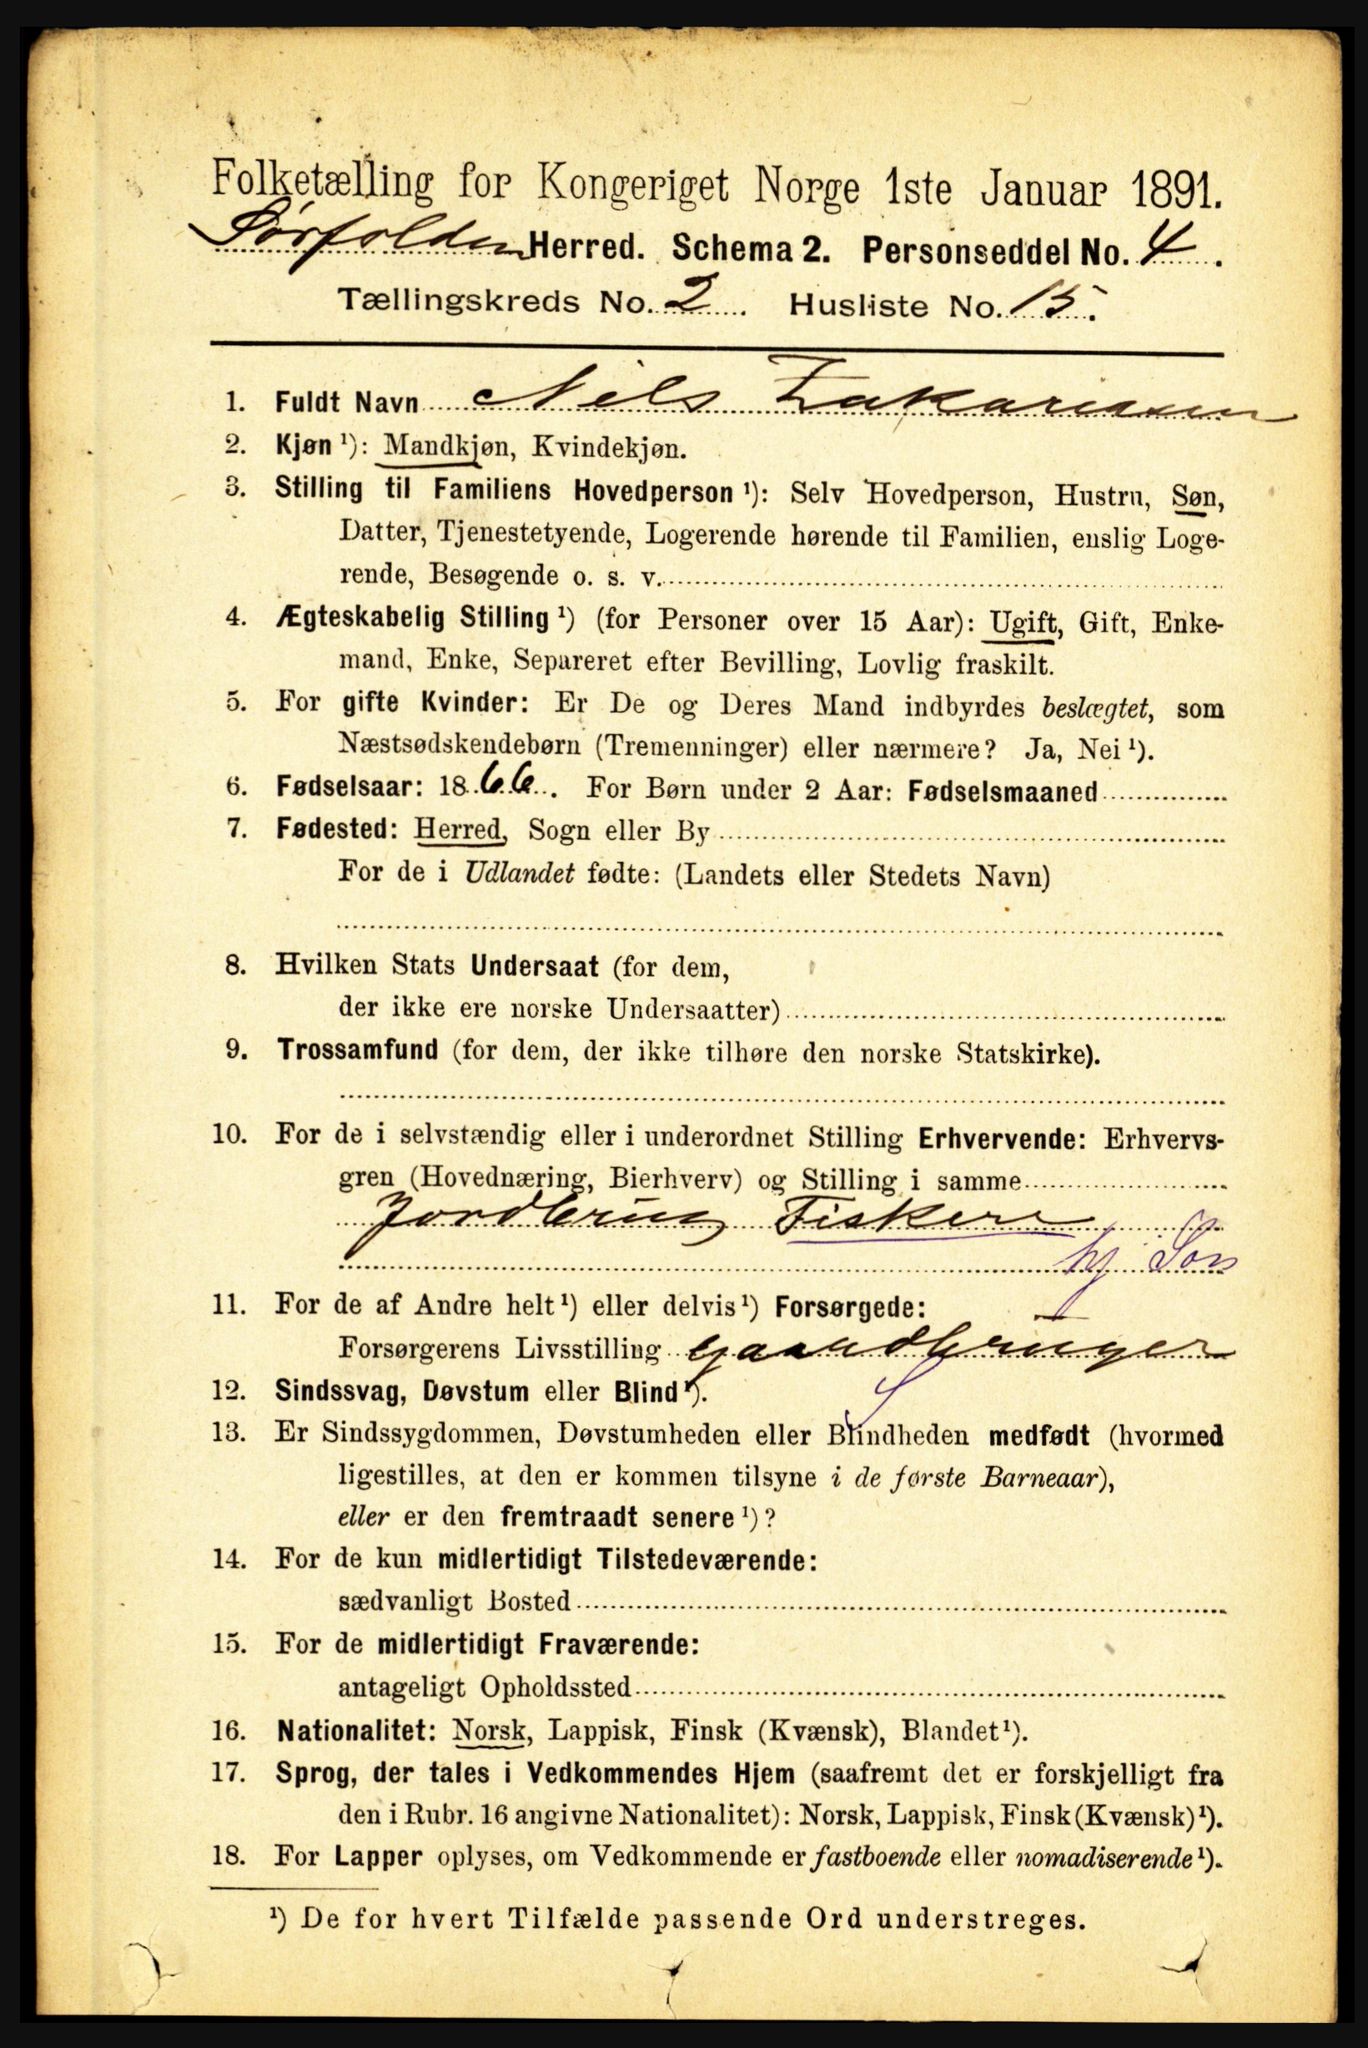 Folketælling for Kongeriget Norge 1ste Januar 1891.
Sørfolden Herred. Schema 2. Personseddel No. 4.
Tællingskreds No. 2. Husliste No. 15.
1. Fuldt Navn Nils Zakariassen
2. Kjøn ¹): Mandkjøn, Kvindekjøn.
3. Stilling til Familiens Hovedperson ¹): Selv Hovedperson, Hustru, Søn,
Datter, Tjenestetyende, Logerende hørende til Familien, enslig Loge-
rende, Besøgende o. s. v.
4. Ægteskabelig Stilling ¹) (for Personer over 15 Aar): Ugift, Gift, Enke-
mand, Enke, Separeret efter Bevilling, Lovlig fraskilt.
5. For gifte Kvinder: Er De og Deres Mand indbyrdes beslægtet, som
Næstsødskendebørn (Tremenninger) eller nærmere? Ja, Nei ¹).
6. Fødselsaar: 1866. For Børn under 2 Aar: Fødselsmaaned
7. Fødested: Herred, Sogn eller By
For de i Udlandet fødte: (Landets eller Stedets Navn)
8. Hvilken Stats Undersaat (for dem,
der ikke ere norske Undersaatter)
9. Trossamfund (for dem, der ikke tilhøre den norske Statskirke).
10. For de i selvstændig eller i underordnet Stilling Erhvervende: Erhvervs-
gren (Hovednæring, Bierhverv) og Stilling i samme
Jordbrug Fiskere
hj Søn
11. For de af Andre helt ¹) eller delvis ¹) Forsørgede:
Forsørgerens Livsstilling gaardbruger
S
12. Sindssvag, Døvstum eller Blind ¹).
13. Er Sindssygdommen, Døvstumheden eller Blindheden medfødt (hvormed
ligestilles, at den er kommen tilsyne i de første Barneaar),
eller er den fremtraadt senere ¹)?
14. For de kun midlertidigt Tilstedeværende:
sædvanligt Bosted
15. For de midlertidigt Fraværende:
antageligt Opholdssted
16. Nationalitet: Norsk, Lappisk, Finsk (Kvænsk), Blandet ¹).
17. Sprog, der tales i Vedkommendes Hjem (saafremt det er forskjelligt fra
den i Rubr. 16 angivne Nationalitet): Norsk, Lappisk, Finsk (Kvænsk) ¹).
18. For Lapper oplyses, om Vedkommende er fastboende eller nomadiserende ¹).
¹) De for hvert Tilfælde passende Ord understreges.